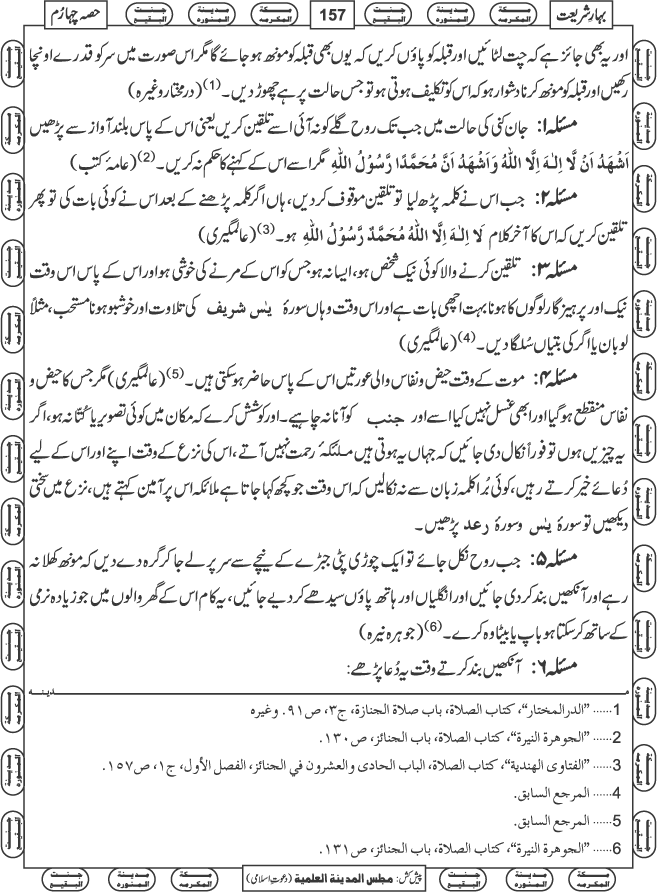 بہارِ شریعت
جنت البقیع
مکۃ المکرمہ
مدینۃ المنورہ
157
جنت البقیع
مدینۃ المنورہ
مکۃ المکرمہ
حصہ چہارم
اور یہ بھی جائز ہے کہ چت لٹائیں اور قبلہ کو پاؤں کریں کہ یوں بھی قبلہ کو مونھ ہو جائے گا مگر اس صورت میں سر کو قدرے اونچا
رکھیں اور قبلہ کو مونھ کرنا دشوار ہو کہ اس کو تکلیف ہوتی ہو تو جس حالت پر ہے چھوڑ دیں۔(1) (درمختار وغیرہ)
مسئلہ ۱: جان کنی کی حالت میں جب تک روح گلے کو نہ آئی اسے تلقین کریں یعنی اس کے پاس بلند آواز سے پڑھیں
اَشْھَدُ اَنْ لَّا اِلٰـہَ اِلَّا اللّٰہُ وَاَشْھَدُ اَنَّ مُحَمَّدًا رَّسُوْلُ اللّٰہِ مگر اسے اس کے کہنے کا حکم نہ کریں۔(2) (عامۂ کتب)
مسئلہ ۲: جب اس نے کلمہ پڑھ لیا تو تلقین موقوف کر دیں، ہاں اگر کلمہ پڑھنے کے بعد اس نے کوئی بات کی تو پھر
تلقین کریں کہ اس کا آخر کلام لَا اِلٰـہَ اِلَّا اللّٰہُ مُحَمَّدٌ رَّسُوْلُ اللّٰہِ ہو۔(3) (عالمگیری)
مسئلہ ۳: تلقین کرنے والا کوئی نیک شخص ہو، ایسا نہ ہو جس کو اس کے مرنے کی خوشی ہو اور اس کے پاس اس وقت
نیک اور پرہیزگار لوگوں کا ہونا بہت اچھی بات ہے اور اس وقت وہاں سورۂ یٰسٓ شریف کی تلاوت اور خوشبو ہونا مستحب، مثلاً
لوبان یا اگر کی بتیاں سُلگا دیں۔(4) (عالمگیری)
مسئلہ ۴: موت کے وقت حیض و نفاس والی عورتیں اس کے پاس حاضر ہو سکتی ہیں۔(5) (عالمگیری) مگر جس کا حیض و
نفاس منقطع ہو گیا اور ابھی غسل نہیں کیا اسے اور جنب کو آنا نہ چاہیے۔ اور کوشش کرے کہ مکان میں کوئی تصویر یا کُتا نہ ہو، اگر
یہ چیزیں ہوں تو فوراً نکال دی جائیں کہ جہاں یہ ہوتی ہیں ملٰئکۂ رحمت نہیں آتے، اس کی نزع کے وقت اپنے اور اس کے لیے
دُعائے خیر کرتے رہیں، کوئی بُرا کلمہ زبان سے نہ نکالیں کہ اس وقت جو کچھ کہا جاتا ہے ملائکہ اس پر آمین کہتے ہیں، نزع میں سختی
دیکھیں تو سورۂ یٰسٓ و سورۂ رعد پڑھیں۔
مسئلہ ۵: جب روح نکل جائے تو ایک چوڑی پٹی جبڑے کے نیچے سے سر پر لے جا کر گرہ دے دیں کہ مونھ کھلا نہ
رہے اور آنکھیں بند کر دی جائیں اور انگلیاں اور ہاتھ پاؤں سیدھے کر دیے جائیں، یہ کام اس کے گھر والوں میں جو زیادہ نرمی
کے ساتھ کر سکتا ہو باپ یا بیٹا وہ کرے۔(6) (جوہرہ نیرہ)
مسئلہ ۶: آنکھیں بند کرتے وقت یہ دُعا پڑھے:
مدینہ
1...... ”الدرالمختار“، کتاب الصلاة، باب صلاة الجنازة، ج٣، ص٩١. وغیرہ
2...... ”الجوهرة النیرة“، کتاب الصلاة، باب الجنائز، ص١٣٠.
3...... ”الفتاوی الهندية“، کتاب الصلاة، الباب الحادی والعشرون في الجنائز، الفصل الأول، ج١، ص١٥٧.
4...... المرجع السابق.
5...... المرجع السابق.
6...... ”الجوهرة النیرة“، کتاب الصلاة، باب الجنائز، ص١٣١.
پیش کش: مجلس المدینۃ العلمیۃ (دعوتِ اسلامی)